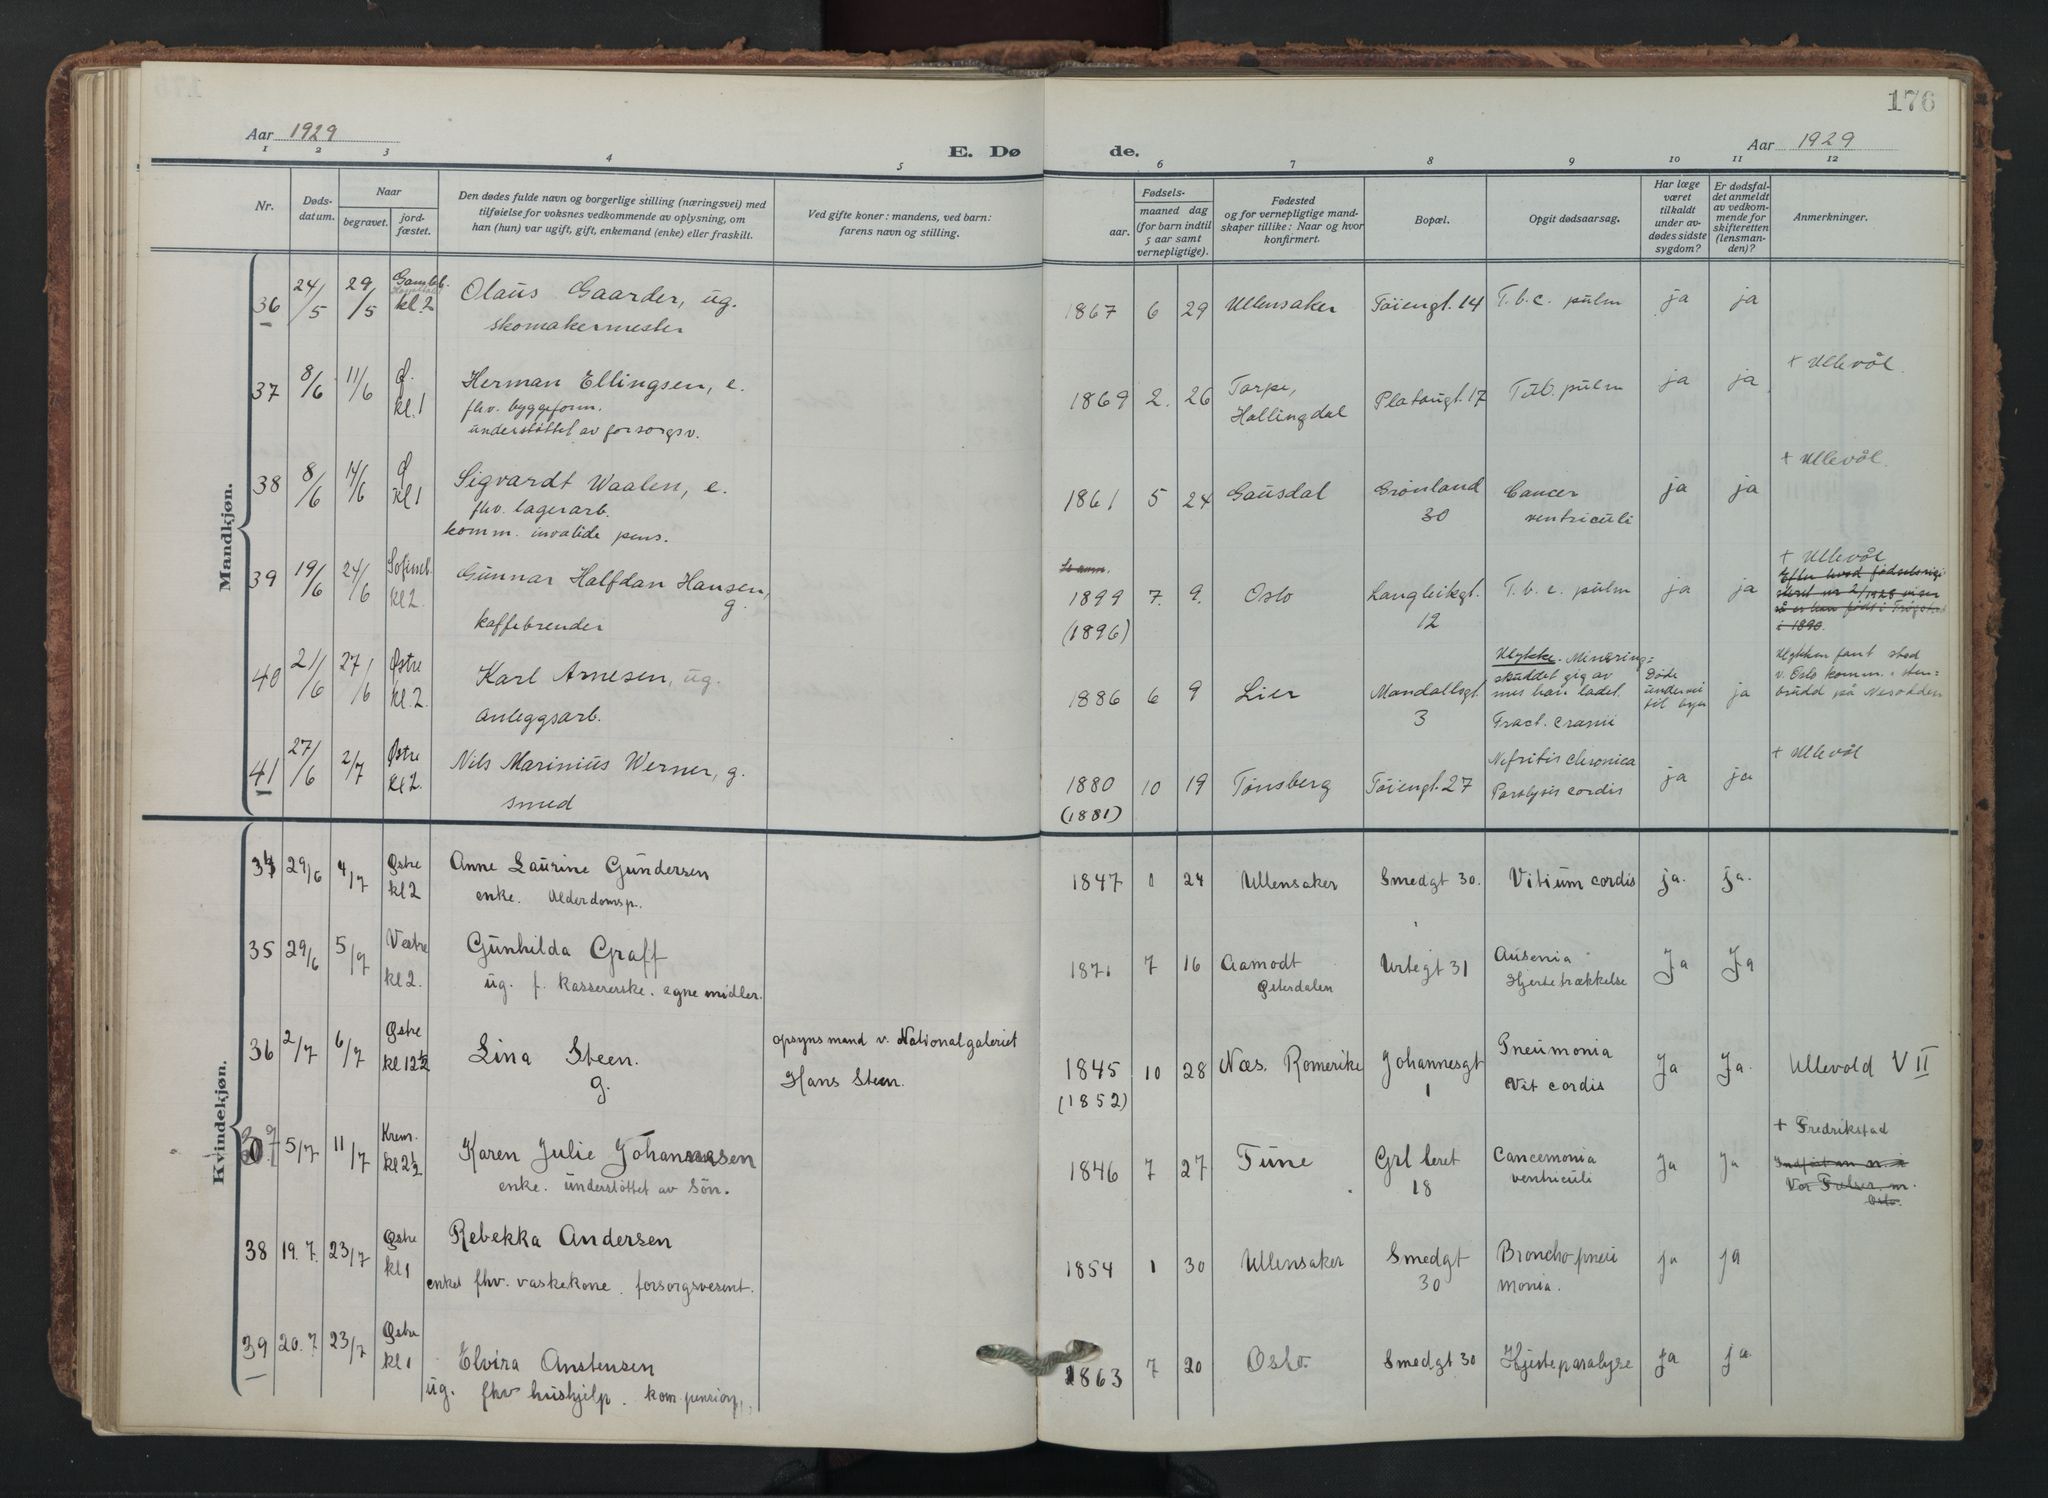 176
Aar 1929
E. Dø
de.
Aar 1929
1 2 3 4 5 6 7 8 9 10 11 12
Nr.
Døds-
datum.
Naar
begravet.
jord-
fæstet.
Den dødes fulde navn og borgerlige stilling (næringsvei) med
tilføielse for voksnes vedkommende av oplysning, om
han (hun) var ugift, gift, enkemand (enke) eller fraskilt.
Ved gifte koner: mandens, ved barn:
farens navn og stilling.
Fødsels-
aar.
maaned dag
(for barn indtil
5 aar samt
vernepligtige).
Fødested
og for vernepligtige mand-
skaper tillike: Naar og hvor
konfirmert.
Bopæl.
Opgit dødsaarsag.
Har læge
været
tilkaldt
under av-
dødes sidste
sygdom?
Er dødsfal-
det anmeldt
av vedkom-
mende for
skifteretten
(lensman-
den)?
Anmerkninger.
Mandkjøn.
36 24/5 29/5 kl. 2 Olaus Gaarder, ug. 1867 6 29 Ullensaker Tøiengt. 14 T.b.c. pulm ja ja
skomakermester
37 8/6 11/6 Ø. kl. 1 Herman Ellingsen, e. 1869 2. 26 Torpe, Platougt. 17 Tub. pulm ja ja + Ullevål.
fhv. byggeform. Hallingdal
understøttet av forsorgsv.
38 8/6 14/6 Ø kl 1 Sigvardt Waalen, e. 1861 5 24 Gausdal Grønland Cancer ja ja + Ullevål.
fhv. lagerarb. 30 ventriculi
komm. invalide pens.
39 19/6 24/6 kl 2. Gunnar Halfdan Hansen, g. 1899 7. 9. Oslo Langleikgt. T.b.c. pulm ja ja + Ullevål
kaffebrender (1896) 12
Efter hvad fødselsregi-
steret nr 2/1928 viser
så er han født i Trøgstad
i 1890.
40 21/6 27/6 Østre kl. 2. Karl Arnesen, ug. 1886 6 9 Lier Mandallsgt. 3
Anleggsarb.
Ulykke. Minering:
skuddet gik av
mens han ladet.
Fract. cranii
Døde
undervei
til byen
ja
Ulykken fant sted
v. Oslo komm. sten-
brudd på Nesodden
41 27/6 2/7 Østre kl 2. Nils Marinius Werner, g. 1880 10 19 Tønsberg Tøiengt. 27 Nefritis chronica ja ja + Ullevål
smed (1881) Paralysis cordis
Kvindekjøn.
34 29/6 4/7 Østre kl 2 Anne Laurine Gundersen 1847 1 24 Ullensaker Smedgt 30. Vitium cordis ja. ja.
enke. Alderdomsp.
35 29/6 5/7 Vestre kl 2. Gunhilda Graff 1871 7 16 Aamodt Urtegt 31 Ja Ja
ug. f. kassererske. egne midler. Østerdalen Hjertetrækkelse
36 2/7 6/7 Østre kl 12½ Lina Steen. opsynsmand v. Nationalgaleriet 1845 10 28 Næs. Romerike Johannesgt Pneumonia Ja Ja. Ullevold V II
g. Hans Steen. (1852) 1 Vit cordis
37 5/7 11/7 Krem. kl 2½ Karen Julie Johannessen 1846 7 27 Tune Grl beret Ja Ja + Fredrikstad
enke. understøttet av Søn. 18 ventriculi
Vor Frelser.
Oslo.
38 19.7. 23/7 Østre kl 1 Rebekka Andersen 1854 1 30 Ullensaker Smedgt Broncho pneu ja ja
enke fhv. vaskekone. forsorgsvesent. 30 monia.
39 20.7 23/7 Østre kl 1 Elvira Anstensen 1863 7 20 Oslo. Smedgt 30 Hjerteparalyse ja ja
ug. fhv hushjelp. kom. pension.